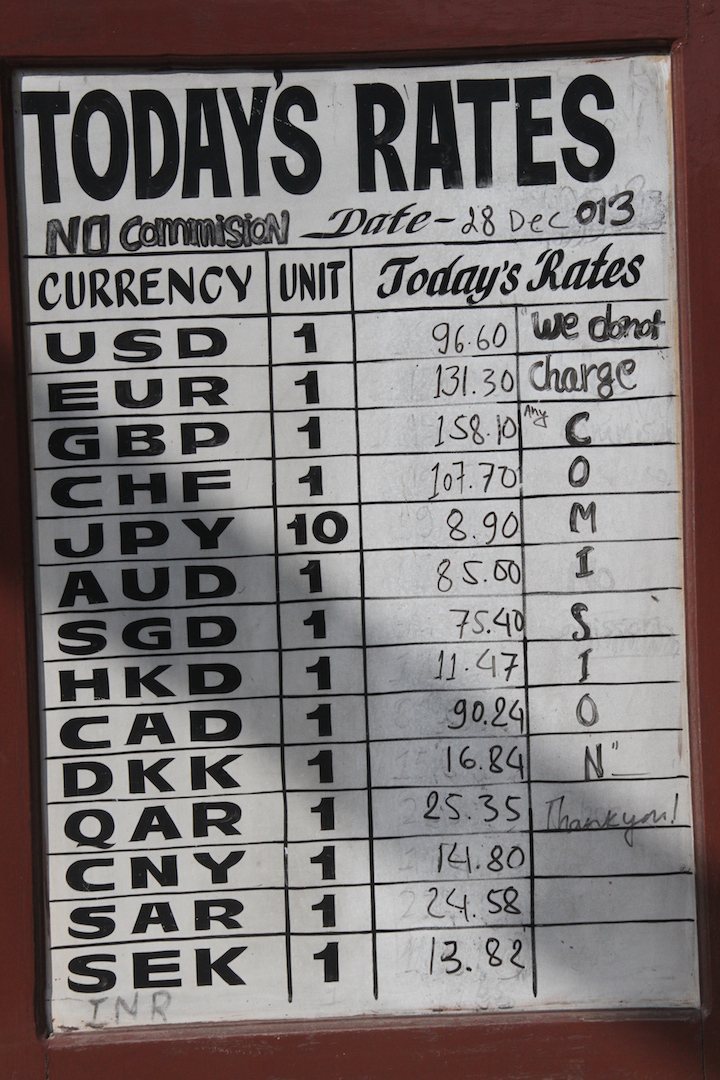 TODAY'S RATES
NO COMMISION Date - 28 Dec 013
CURRENCY UNIT Today's Rates
USD 1 96.60 We donot
EUR 1 131.30 Charge
GBP 1 158.10 Any C
CHF 1 107.70 O
JPY 10 8.90 M
AUD 1 85.00 I
SGD 1 75.40 S
HKD 1 11.47 I
CAD 1 90.24 O
DKK 1 16.84 N"
QAR 1 25.35 Thank you!
CNY 1 14.80
SAR 1 24.58
SEK 1 13.82
INR